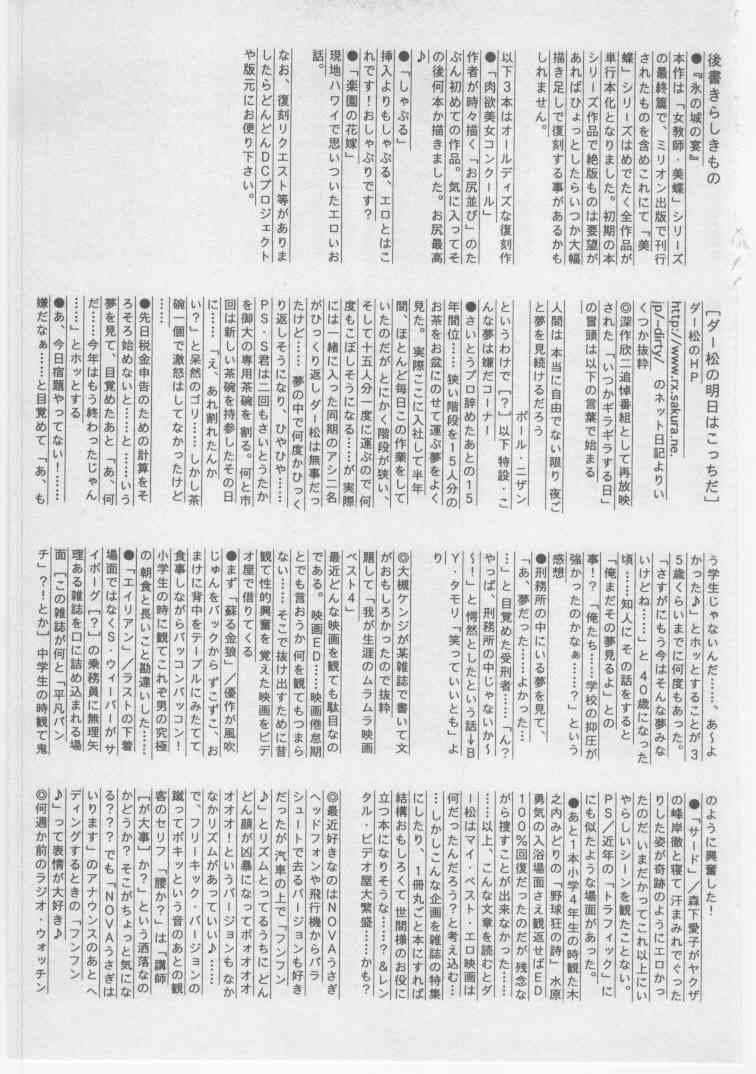 後書きらしきもの
●『氷の城の宴』
本作は「女教師・美蝶」シリーズ
の最終篇で、ミリオン出版で刊行
されたものを含めこれにて「美
蝶」シリーズはめでたく全作品が
単行本化となりました。初期の本
シリーズ作品で絶版ものは要望が
あればひょっとしたらいつか大幅
描き足しで復刻する事があるかも
しれません。
以下3本はオールディズな復刻作
●「肉欲美女コンクール」
作者が時々描く「お尻並び」のた
ぶん初めての作品。気に入ってそ
の後何本か描きました。お尻最高
♪
●「しゃぶる」
挿入よりもしゃぶる、エロとはこ
れです！おしゃぶりです？
●「楽園の花嫁」
現地ハワイで思いついたエロいお
話。
なお、復刻リクエスト等がありま
したらどんどんDCプロジェクト
や版元にお便り下さい。
［ダー松の明日はこっちだ］
ダー松のHP
http://www.rx.sakura.ne.
jp/~dirty/　のネット日記よりい
くつか抜粋
◎深作欣二追悼番組として再放映
された「いつかギラギラする日」
の冒頭は以下の言葉で始まる
人間は 本当に自由でない限り 夜ご
と夢を見続けるだろう
ポール・ニザン
というわけで［？］以下 特設・こ
んな夢は嫌だコーナー
●さいとうプロ辞めたあとの15
年間位…… 狭い階段を15人分の
お茶をお盆にのせて運ぶ夢をよく
見た。実際ここに入社して半年
間、ほとんど毎日この作業をして
いたのだが とにかく階段が狭い、
そして十五人分一度に運ぶので何
度もこぼしそうになる……が 実際
には一緒に入った同期のアシ二名
がひっくり返し ダー松は無事だっ
たけど…… 夢の中で何度かひっく
り返しそうになり、ひやひや……
PS・S君は二回もさいとうたか
を御大の専用茶碗を 割る。何と市
回は新しい茶碗を持参したその日
に……　「え、あれ割れたんか
い？」と呆然のゴリ……しかし茶
碗一個で激怒はしてなかったけど
……
●先日税金申告のための計算をそ
ろそろ始めないと……と……いう
夢を見て、目覚めたあと「あ、何
だ……今年はもう終わったじゃん
……」とホッとする
●あ、今日宿題やってない！……
嫌だなぁ……と目覚めて「あ、も
う学生じゃないんだ……、あ〜よ
かった♪」とホッとすることが3
5歳くらいまでに何度もあった。
「さすがにもう今はそんな夢みな
いけどね……」と 40歳になった
頃……知人に その話をすると
「俺まだその夢見るよ」との
事！？「俺たち……学校の抑圧が
強かったのかなぁ……？」という
感想
●刑務所の中にいる夢を見て、
「あ、夢だった……よかった…
…」と目覚めた受刑者……「ん？
やっぱ、刑務所の中じゃないか〜
〜！」と愕然としたという話→B
Y・タモリ「笑っていいとも」よ
り
◎大槻ケンジが某雑誌で書いて文
がおもしろかったので抜粋。
題して「我が生涯のムラムラ映画
ベスト4」
最近どんな映画を観ても駄目なの
である。映画ED……映画倦怠期
とでも言おうか 何を観てもつまら
ない…… そこで抜け出すために昔
観て性的興奮を覚えた映画をビデ
オ屋で借りてくる
●まず「蘇る金狼」／優作が風吹
じゅんをバックから ずこずこ、お
まけに背中をテーブルにみたてて
食事しながらバッコンバッコン！
小学生の時に観てこれぞ男の究極
の朝食と長いこと勘違いした……
●「エイリアン」／ラストの下着
場面ではなくS・ウィーバーがサ
イボーグ［？］の乗務員に無理矢
理ある雑誌を口に詰め込まれる場
面［この雑誌が何と「平凡パン
チ」？！とか］中学生の時観て鬼
のように興奮した！
●「サード」／森下愛子がヤクザ
の峰岸徹と寝て 汗まみれでぐった
りした姿が奇跡のようにエロかっ
たのだ いまだかつてこれ以上にい
やらしいシーンを観たことない。
PS／近年の「トラフィック」に
にも似たような場面があった。
●あと1本小学4年生の時観た木
之内みどりの「野球狂の詩」水原
勇気の入浴場面さえ観返せばED
100％回復だったのだが 残念な
がら捜すことが出来なかった……
……以上、こんな文章を読むとダ
ー松はマイ・ベスト・エロ映画は
何だったんだろう？と考え込む…
…しかしこんな企画を雑誌の特集
にしたり、1冊丸ごと本にすれば
結構おもしろくて 世間様のお役に
立つ本になりそうな……？＆レン
タル・ビデオ屋大繁盛……かも？
◎最近好きなのはNOVAうさぎ
ヘッドフォンや飛行機からパラ
シュートで去るバージョンも好き
だったが 汽車の上で「フンフン
♪」とリズムとってるうちに どん
どん顔が凶暴になってボォオオオ
オオオ！というバージョンも なか
なかリズムがあっていい♪……
で、フリーキック・バージョンの
蹴ってボキッという音のあとの観
客のセリフ「腰か？」は「講師
［が大事］か？」という洒落なの
かどうか？そこがちょっと気にな
る？？？でも、「NOVAうさぎは
いります」のアナウンスのあと ヘ
ディングするときの「フンフン
♪」って表情が大好き♪
◎何週か前のラジオ・ウォッチン